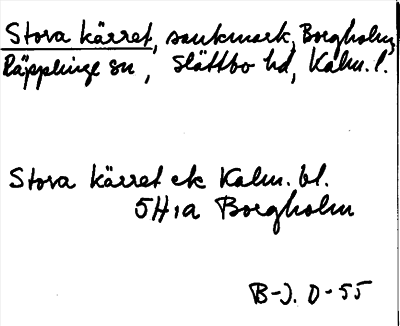 Stora kärret, sankmark, Borgholm,
Räpplinge sn, Slättbo hd, Kalm. l.
Stora kärret ek Kalm. bl.
5H1a Borgholm
B-J. O-55